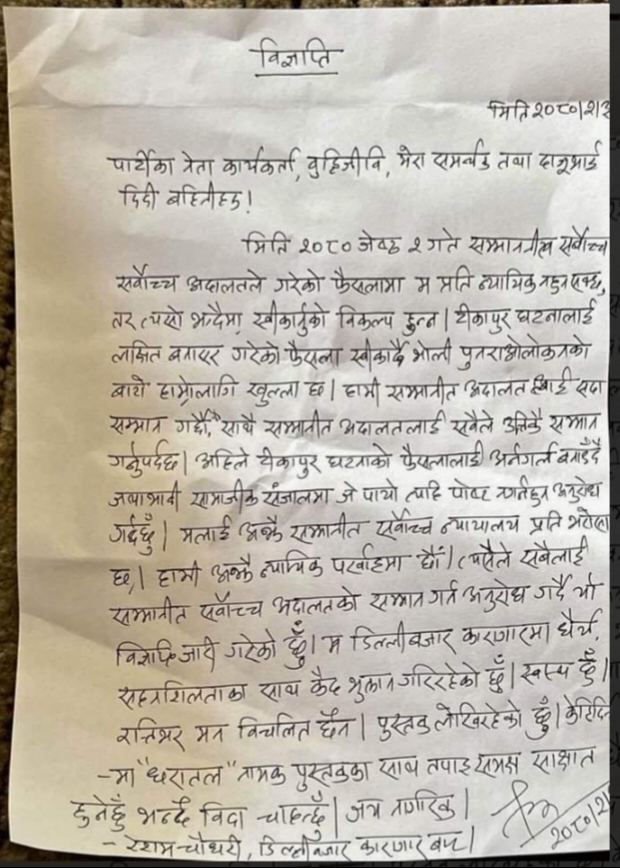 विज्ञप्ति
मिति २०८०।२।३
पार्टीका नेता कार्यकर्ता, बुद्धिजीवि, मेरा समर्थक तथा दाजुभाई
दिदी बहिनीहरु!
मिति २०८० जेठ २ गते सम्माननीय सर्वोच्च
सर्वोच्च अदालतले गरेको फैसलामा म प्रति न्यायिक नहुन सक्छ,
तर त्यसो भन्दैमा स्वीकार्नुको विकल्प हुन्न। टीकापुर घटनालाई
लक्षित बनाएर गरेको फैसला स्वीकार्दै भोली पुनरावलोकनको
बाटो हाम्रोलागि खुल्ला छ। हामी सम्मानीत अदालत लाई सदा
सम्मान गर्छौं, साथै सम्मानीत अदालतलाई सबैले उत्तिकै सम्मान
गर्नुपर्दछ। अहिले टीकापुर घटनाको फैसलालाई अर्नगर्ल बनाउँदै
जथाभावी सामाजीक संजालमा जे पायो त्यहि पोष्ट नगर्नहुन अनुरोध
गर्दछुँ। मलाई अझै सम्मानीत सर्वोच्च न्यायालय प्रति भरोसा
छ। हामी अझै न्यायिक परर्वाहमा छौं। त्यसैले सबैलाई
सम्मानीत सर्वोच्च अदालतको सम्मान गर्न अनुरोध गर्दै यो
विज्ञप्ति जारी गरेको छुँ। म डिल्लीबजार कारागारमा धैर्य,
सहनशिलताका साथ कैद भुक्तान गरिरहेको छुँ। स्वस्थ छुँ।
रत्तिभर मन विचलित छैन। पुस्तक लेखिरहेको छुँ। केहिदिन
-मा "धरातल" नामक पुस्तकका साथ तपाइ समक्ष साक्षात
हुनेछुँ भन्दै विदा चाहन्छुँ। जय नागरिक।
- रेशम चौधरी, डिल्लीबजार कारागार बाट। २०८०।२।